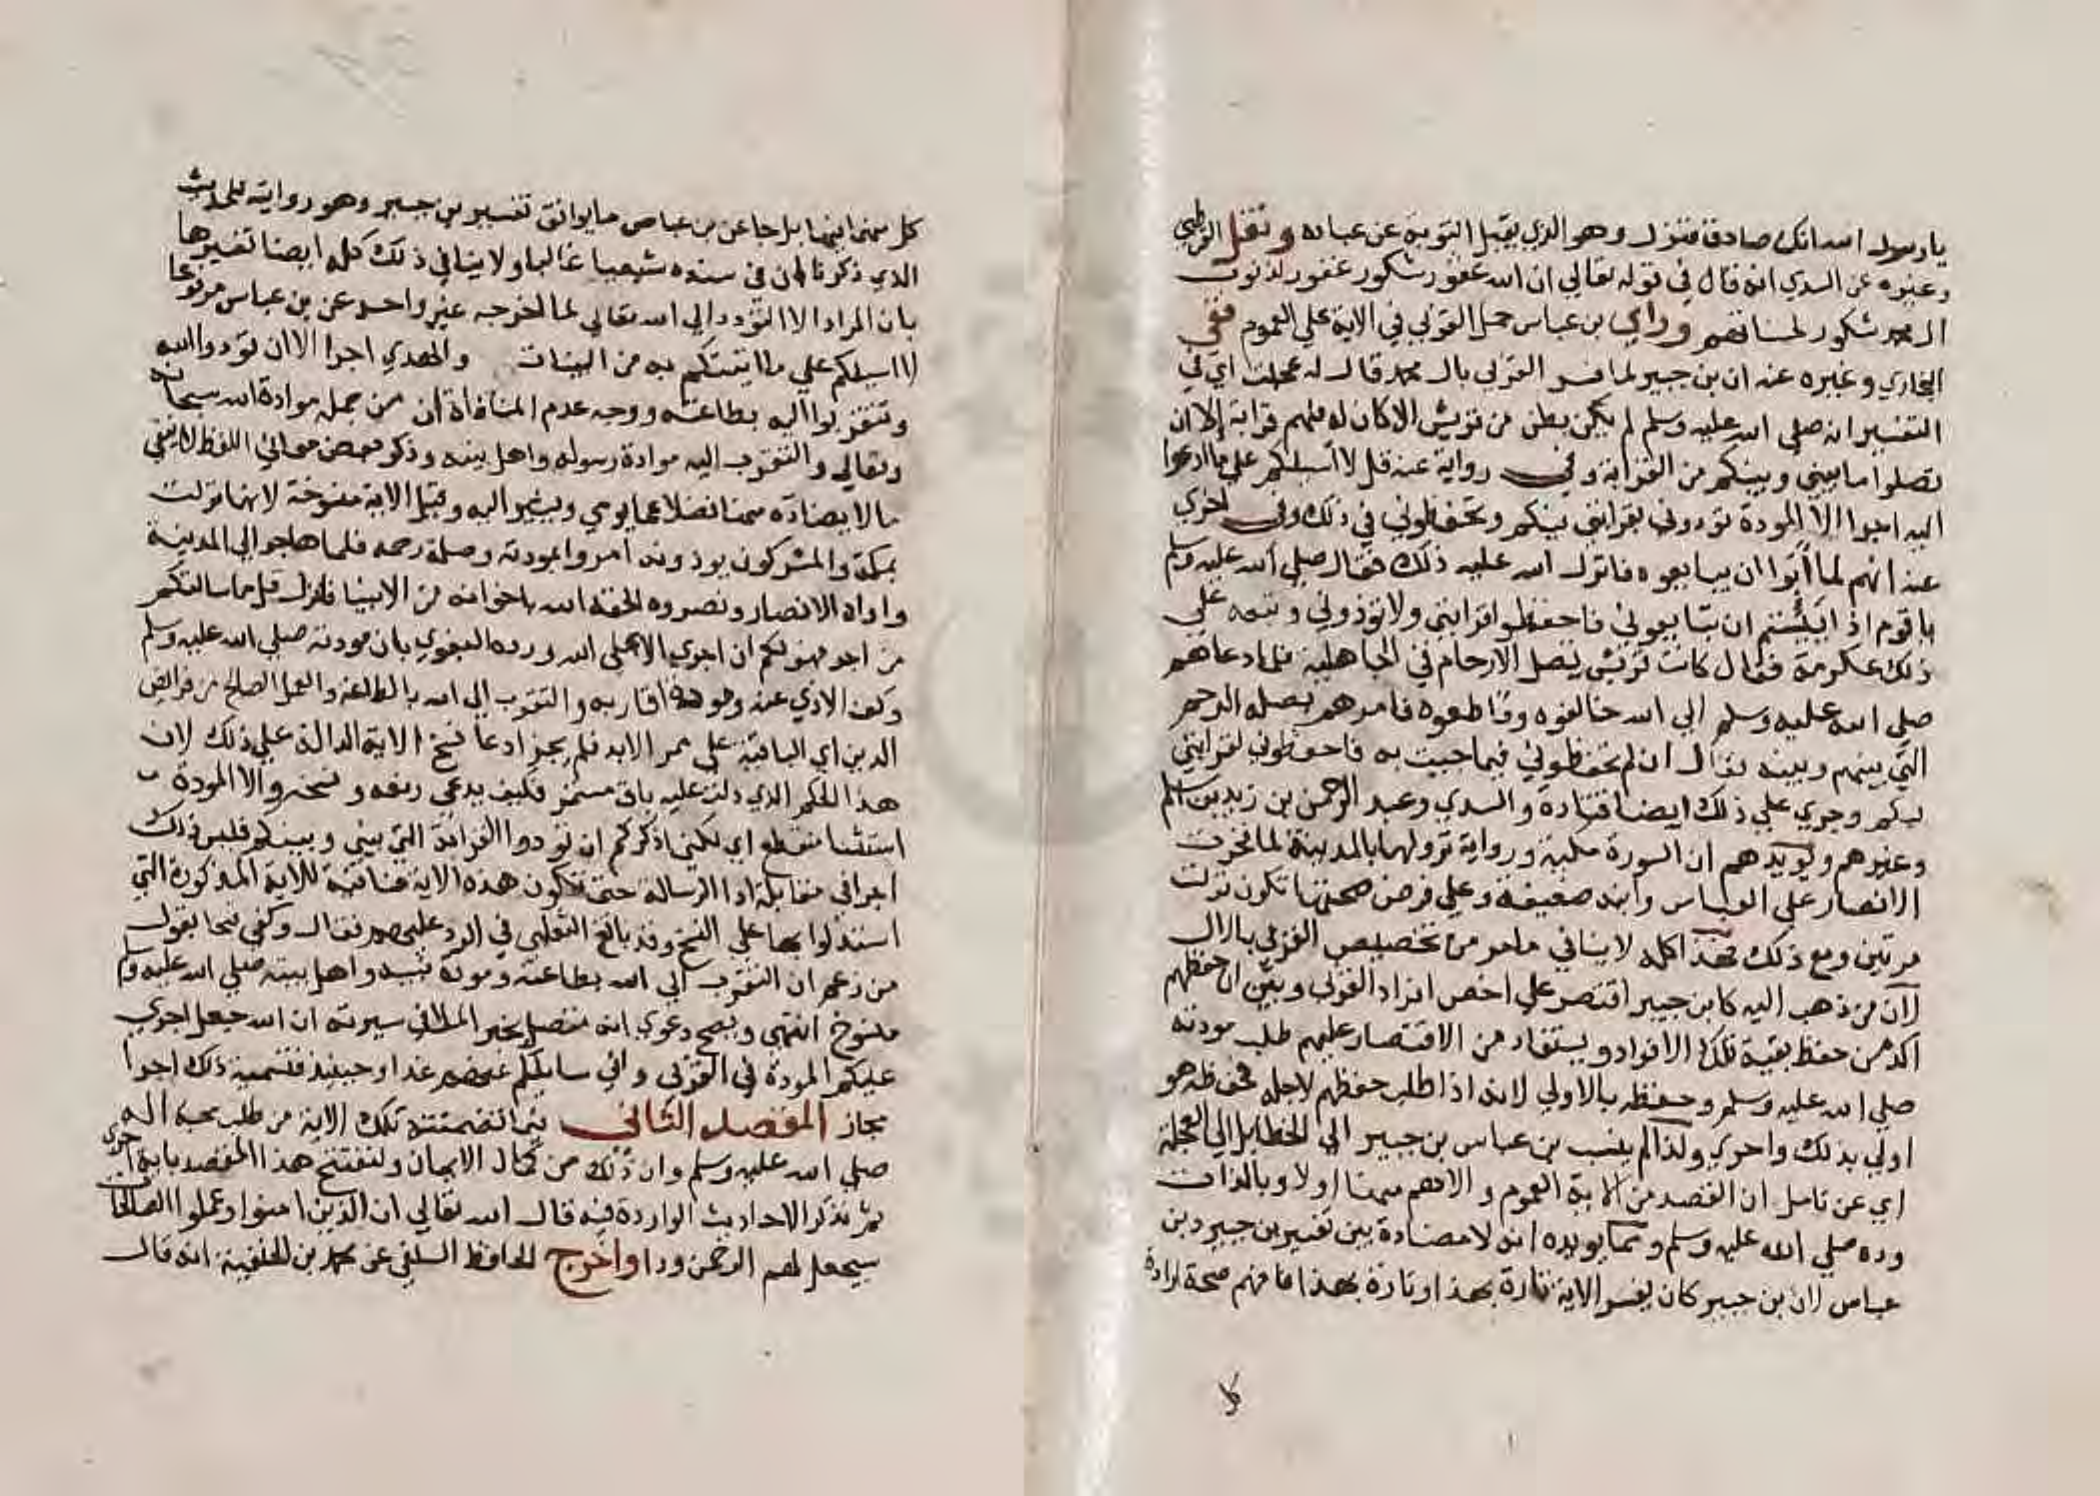 يارسول اسه انك صادق فنزل وهو الذي يقبل التوبة عن عباده ونقل القرطبي
وغيره عن السدي انه قال في قوله تعالي ان الله غفور شكور غفور لذنوب
ال محمد شكور لحسناتهم وراي بن عباس حمل القربي في الاية علي العموم ففي
البخاري وغيره عنه ان بن جبير لما فسر القربي بال محمد قال له عجلت اي في
التفسير انه صلي اسه عليه وسلم لم يكن بطن من قريش الا كان له منهم قرابة الا ان
تصلوا ما بيني وبينكم من القرابة وفي رواية عنه قل لا أسيلكم علي ما ادعوا
اليه اجرا الا المودة تودوني بقرابتي فيكم وتحفظوني في ذلك وفي اخري
عنه انهم لما أبوا ان يبايعوه فانزل اسه عليه ذلك فقال صلي الله عليه وسلم
يا قوم اذ ابيتم ان تبايعوني فاحفظوا قرابتي ولا توذوني وتبعه علي
ذلك عكرمة فقال كانت قريش تصل الارحام في الجاهلية فلما دعاهم
صلي الله عليه وسلم الي الله خالفوه وقاطعوه فامرهم بصلة الرحم
التي بينهم وبينه فقال ان لم تحفظوني فيما جيت به فاحفظوني لقرابتي
فيكم وجري علي ذلك ايضا قتادة والسدي وعبد الرحمن بن زيد بن اسلم
وغيرهم ويويدهم ان السورة مكية ورواية نزولها بالمدينة لما فخرت
الانصار علي العباس وابنه ضعيفة وعلي فرض صحتها تكون نزلت
مرتين ومع ذلك فهذا كله لا ينافي ما مر من تخصيص القربي بالال
لان من ذهب اليه كابن جبير اقتصر علي اخص افراد القربي وبين ان حفظهم
اكد من حفظ بقية تلك الافراد ويستفاد من الاقتصار عليهم طلب مودته
صلي اسه عليه وسلم وحفظه بالاولي لانه اذا طلب حفظهم لاجله فحفظه هو
اولي بذلك واحري ولذا لم ينسب بن عباس بن جبير الي الخطا بل الي العجلة
اي عن تامل ان القصد من الاية العموم والاهم منها اولا وبالذات
وده صلي الله عليه وسلم ومما يويده انه لا مضادة بين تفسير بن جبير وبن
عباس ان بن جبير كان يفسر الاية تارة بهذا وتارة بهذا فافهم صحة ارادة
كل
كل منهما بل جا عن بن عباس ما يوافق تفسير بن جبير وهو روايته للحديث
الذي ذكرنا ان في سنده شيعيا غاليا ولا ينافي ذلك كله ايضا تفسيرها
بان المراد الا التودد الي اسه تعالي لما اخرجه غير واحد عن بن عباس مرفوعا
لا اسيلكم علي ما اتيتكم به من البينات والهدي اجرا الا ان تودوا الله
وتتقربوا اليه بطاعته ووجه عدم المنافاة ان من جملة موادة اسه سبحانه
وتعالي والتقرب اليه موادة رسوله واهل بيته وذكر بعض معاني اللفظ لا ينفي
ما لا يضاده منها فضلا عما يومي ويشير اليه وقيل الاية منسوخة لانها نزلت
بمكة والمشركون يوذونه امروا بمودته وصلة رحمه فلما هاجر الي المدينة
واواه الانصار ونصروه الحقه الله باخوانه من الانبيا فانزل قل ما سالتكم
من اجر فهو لكم ان اجري الا علي الله ورده البغوي بان مودته صلي الله عليه وسلم
وكف الاذي عنه ومودة اقاربه والتقرب الي اسه بالطاعة والعمل الصالح من فرايض
الدين اي الباقية علي ممر الابد فلم يجز ادعا نسخ الاية الدالة علي ذلك لان
هذا الحكم الذي دلت عليه باق مستمر فكيف يدعي رفعه ونسخه والا المودة
استثنا منقطع اي لكني اذكركم ان تودوا القرابة التي بيني وبينكم فليس ذلك
اجرا في مقابلة ادا الرسالة حتي تكون هذه الاية منافية للاية المذكورة التي
استدلوا بها علي النسخ وقد بالغ الثعلبي في الرد عليهم فقال وكفي قبحا بقول
من زعم ان التقرب الي الله بطاعته ومودة نبيه واهل بيته صلي الله عليه وسلم
منسوخ انتهي ويصح دعوي انه متصل بخبر الملا في سيرته ان الله جعل اجري
عليكم المودة في القربي واني سايلكم عنهم غدا وحينيذ فتسمية ذلك اجرا
مجاز المقصد الثاني فيما تضمنته تلك الاية من طلب محبة اله
صلي الله عليه وسلم وان ذلك من كمال الايمان ولنفتتح هذا المقصد باية اخري
ثم نذكر الاحاديث الواردة فيه قال اسه تعالي ان الذين امنوا وعملوا الصالحات
سيجعل لهم الرحمن ودا واخرج الحافظ السلفي عن محمد بن الحنفية انه قال